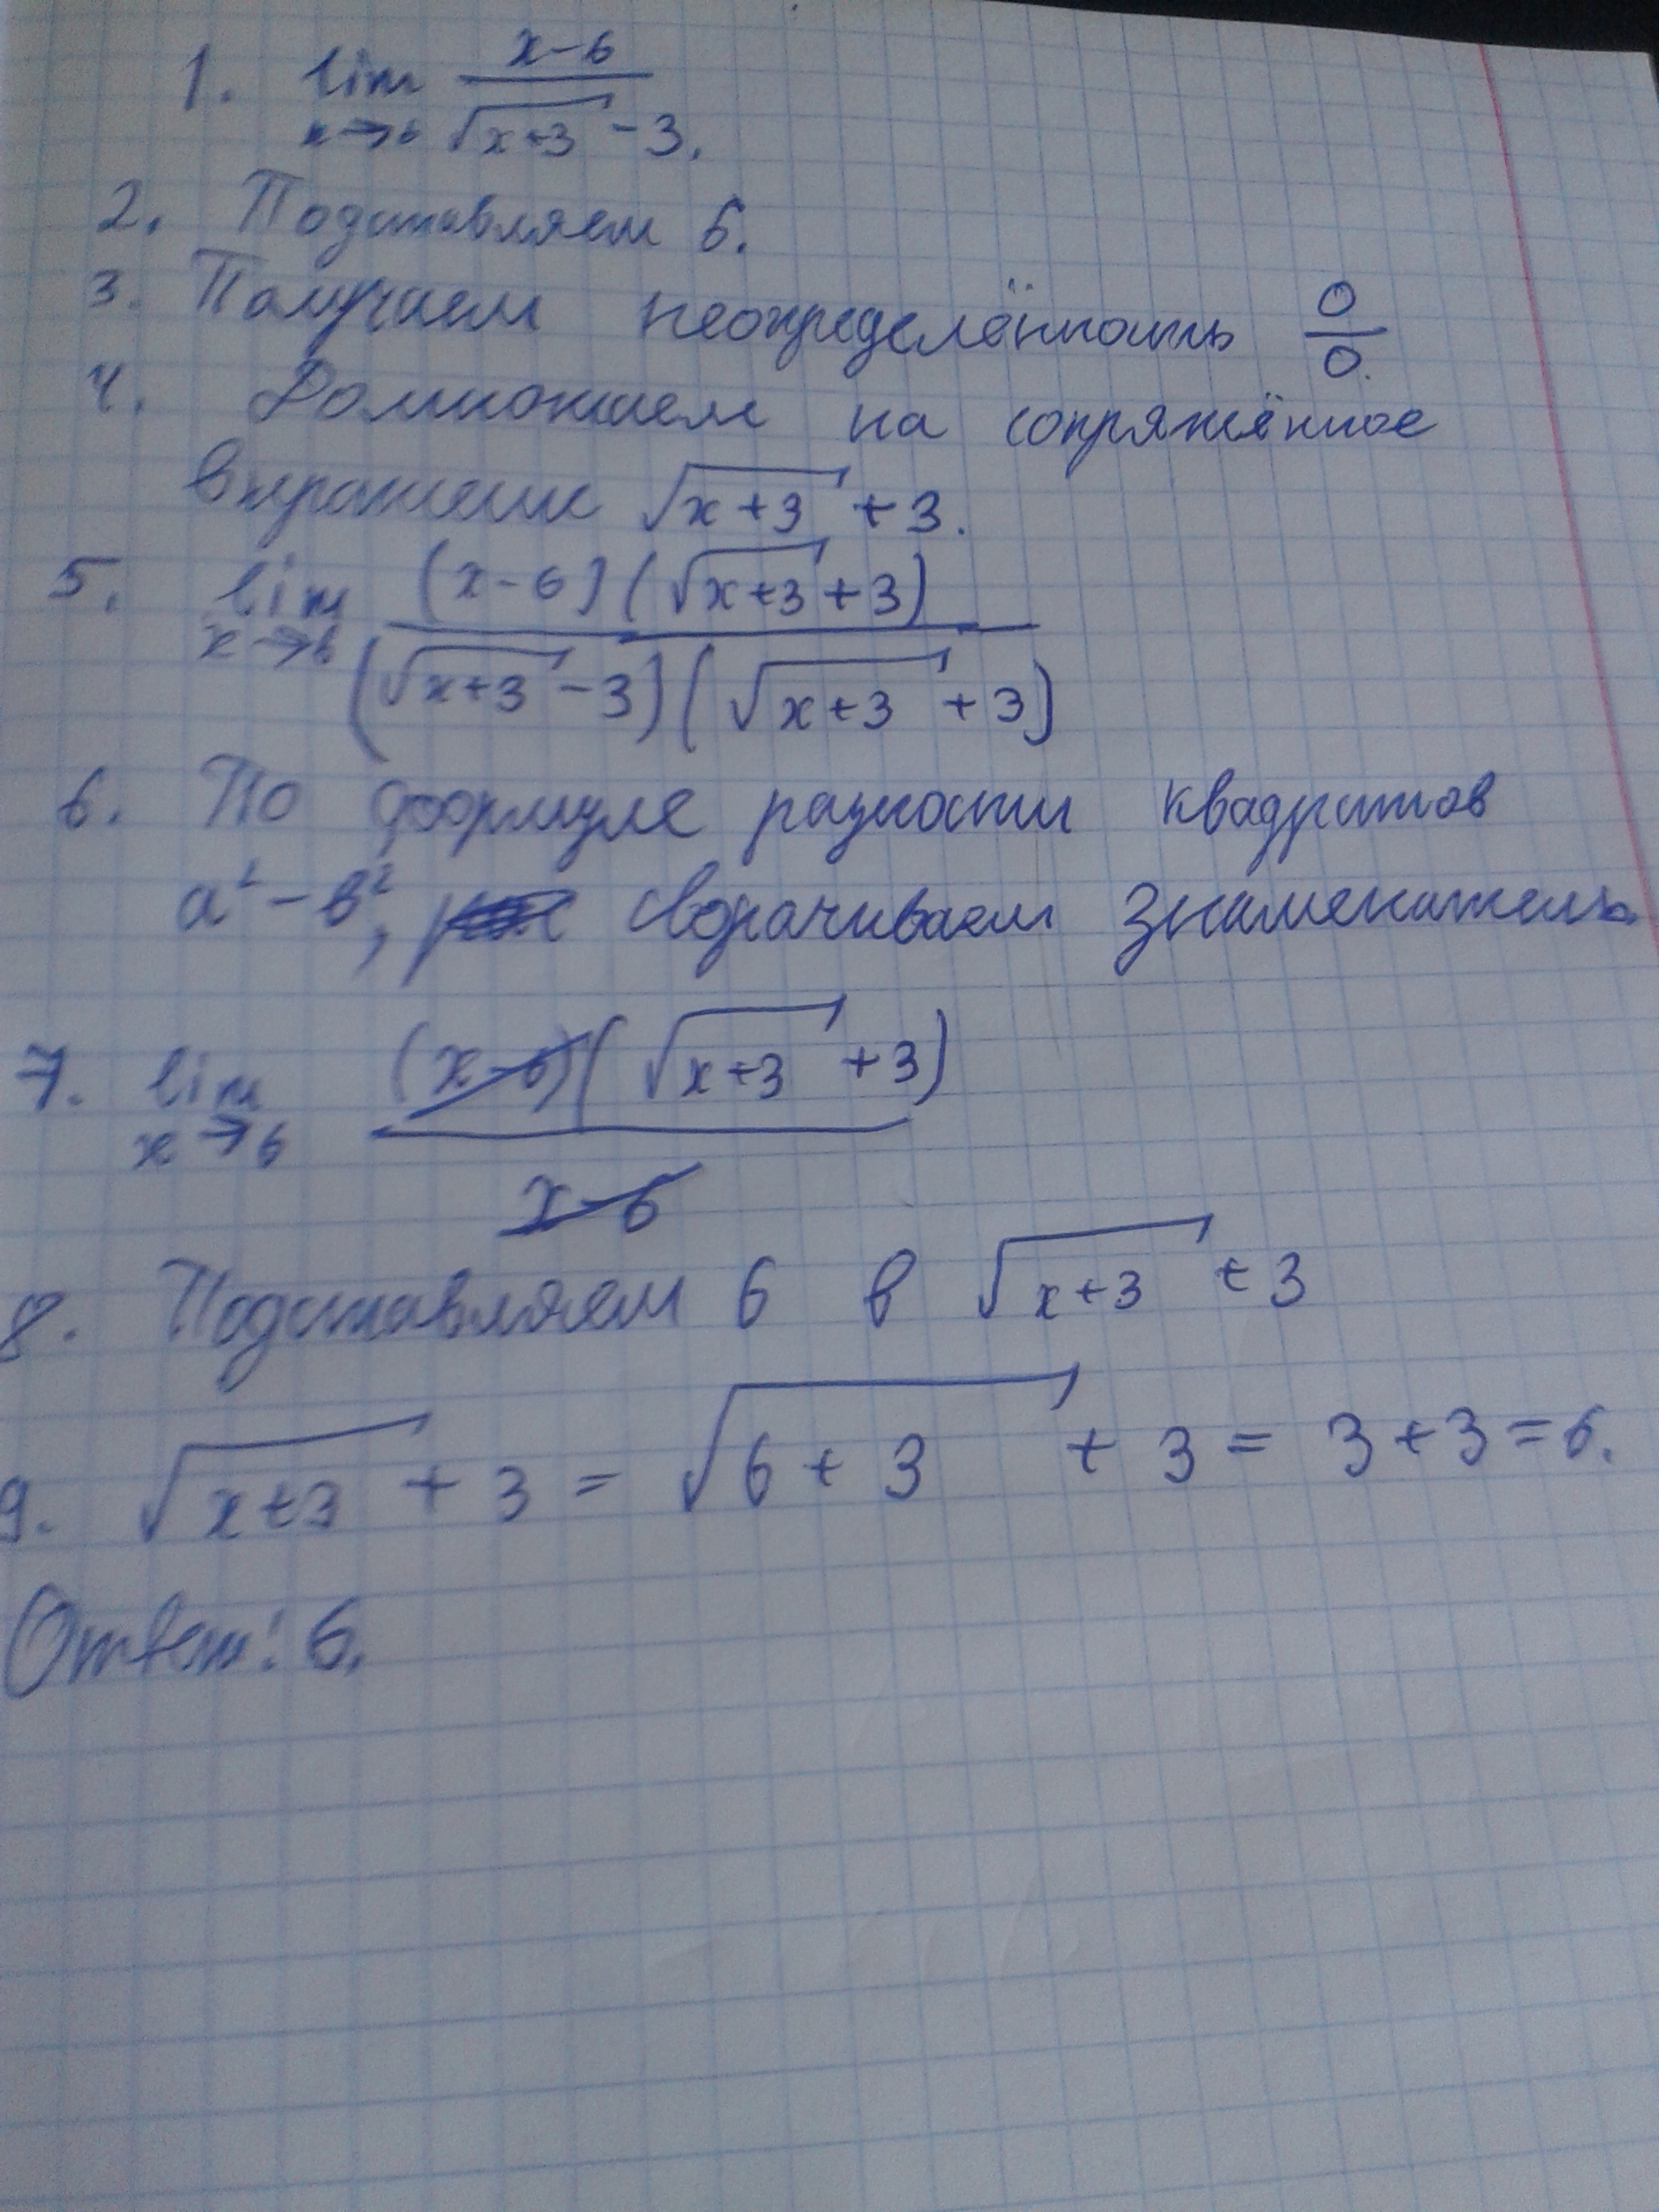 1. lim x→6 (x-6)/(√(x+3) - 3).
2. Подставляем 6.
3. Получаем неопределённость 0/0.
4. Домножаем на сопряжённое
выражение √(x+3) + 3.
5. lim x→6 (x-6)(√(x+3) + 3)/((√(x+3) - 3)(√(x+3) + 3))
6. По формуле разности квадратов
a² - b², сворачиваем знаменатель
7. lim x→6 (x-6)(√(x+3) + 3)/(x-6)
8. Подставляем 6 в √(x+3) + 3
9. √(x+3) + 3 = √(6+3) + 3 = 3 + 3 = 6.
Ответ: 6.